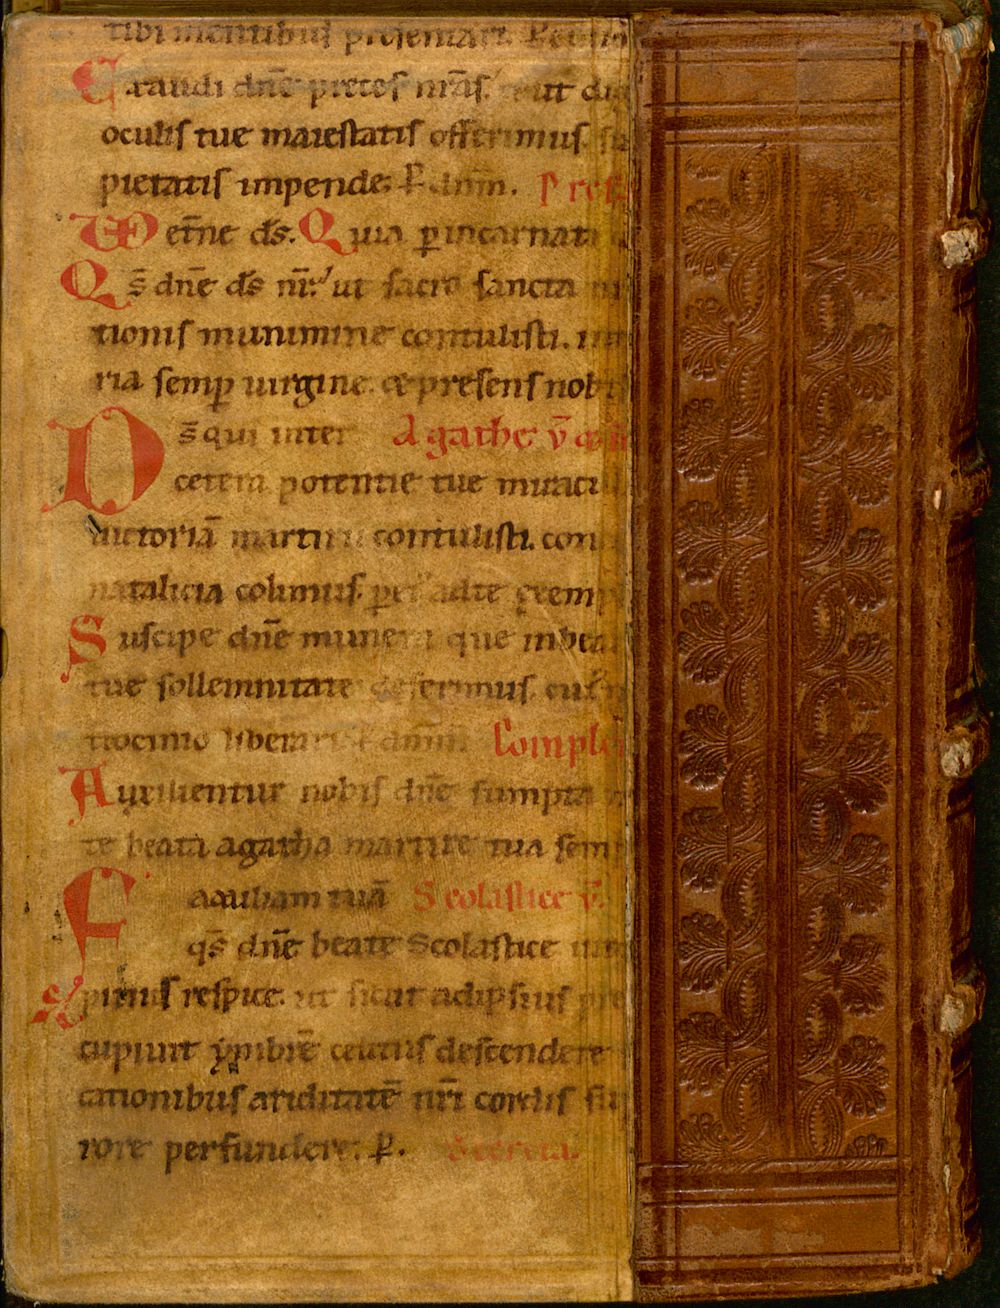 tibi mentibus presentari. P eunde
Exaudi dn̄e preces nr̄as. ut
oculis tue maiestatis offerimus.
pietatis impende. P dnm̄. Pref
VD etn̄e ds̄. Quia p incarnati
Qs̄ dn̄e ds̄ nr̄ ut sacro sancta
tionis munimine contulisti.
ria semp uirgine. et presens nob
Ds̄ qui inter Agathe v̄
cetera potentie tue miracu
uictoriā martirii contulisti. con
natalicia colimus. per ad te exemp
Suscipe dn̄e munera que in bea
tue sollemnitate deferimus. cui
trocinio liberari. P dnm̄ Comple
Auxilientur nobis dn̄e sumpta
te beata agatha martire tua sem
familiam tuā Scolastice v̄.
qs̄ dn̄e beate Scolastice
ginis respice. ut sicut ad ipsius
cupiuit ymbrē celitus descendere
cationibus ariditatē nr̄i cordis su
rore perfundere. P. Secreta.